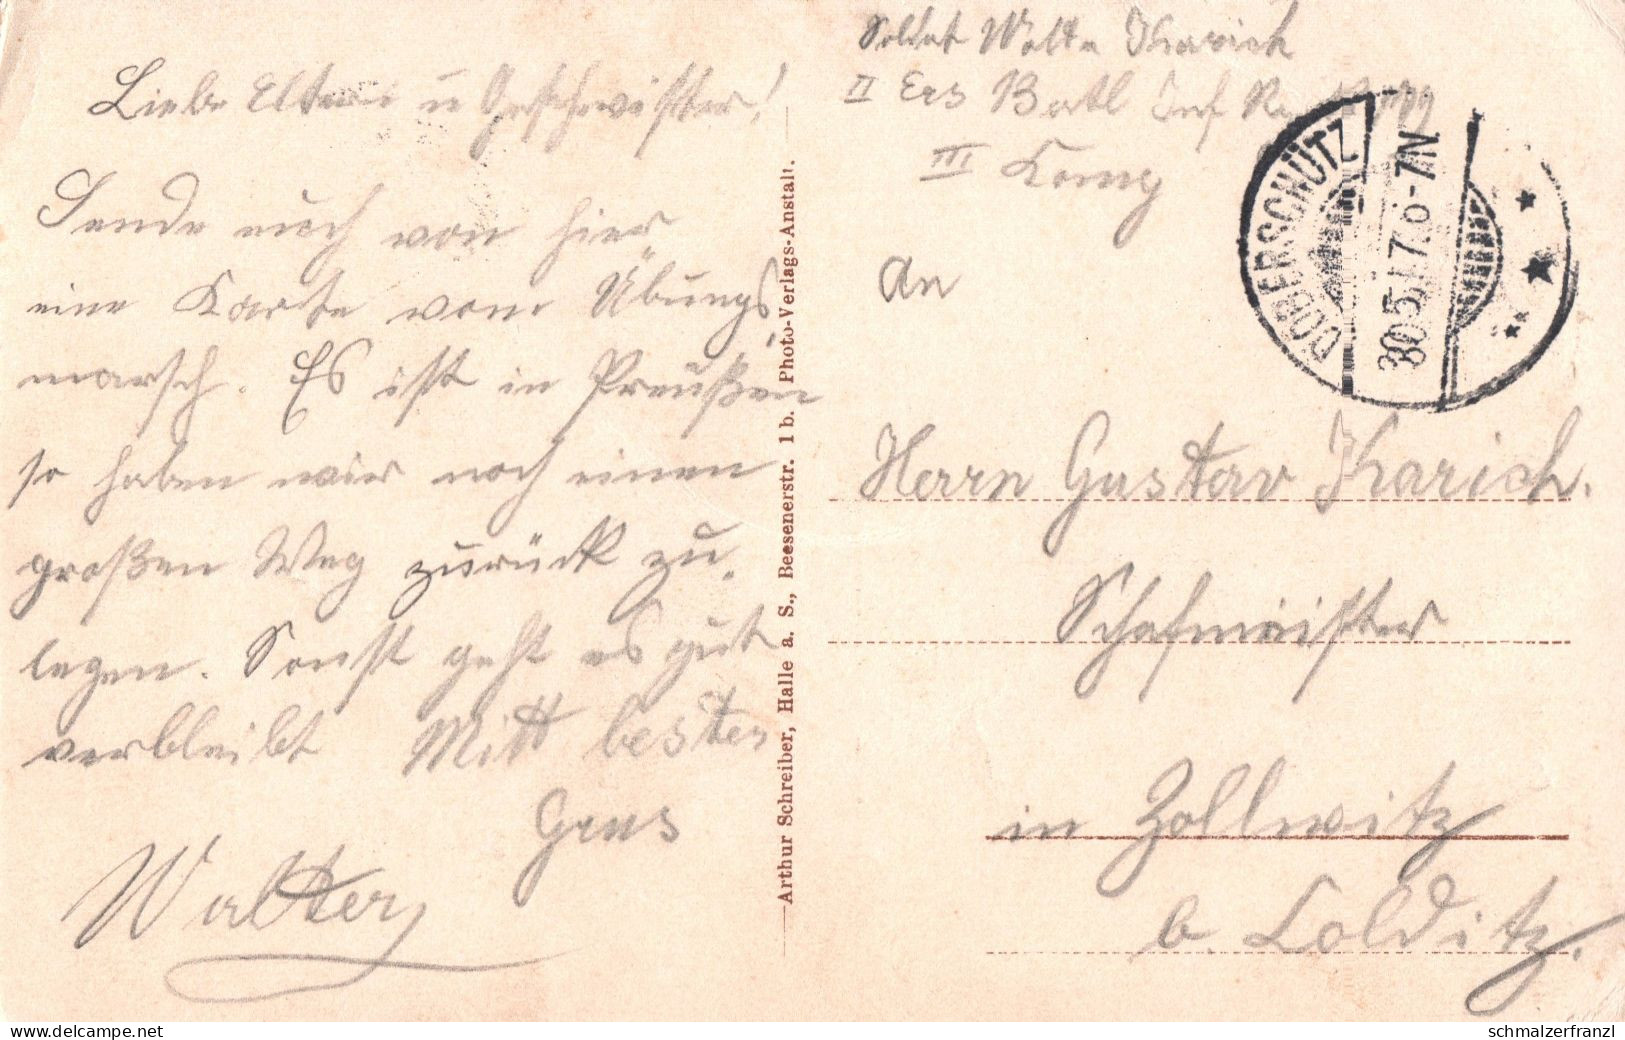 Liebe Eltern u Geschwister!
Sende euch von hier
eine Karte vom Übungs
marsch. Es ist in Preußen
so haben wir noch einen
großen Weg zurück zu
legen. Sonst geht es gut
verbleibt Mitt besten
Grus
Walter
Arthur Schreiber, Halle a. S., Beesenerstr. 1 b. Photo-Verlags-Anstalt.
Soldat Walter Karich
II Ers Batl Inf
III Komg
DOBERSCHÜTZ
30.5.17.6-7N
An
Herrn Gustav Karich.
Schafmeister
in Zollwitz
b. Colditz.
schmalzerfranzl